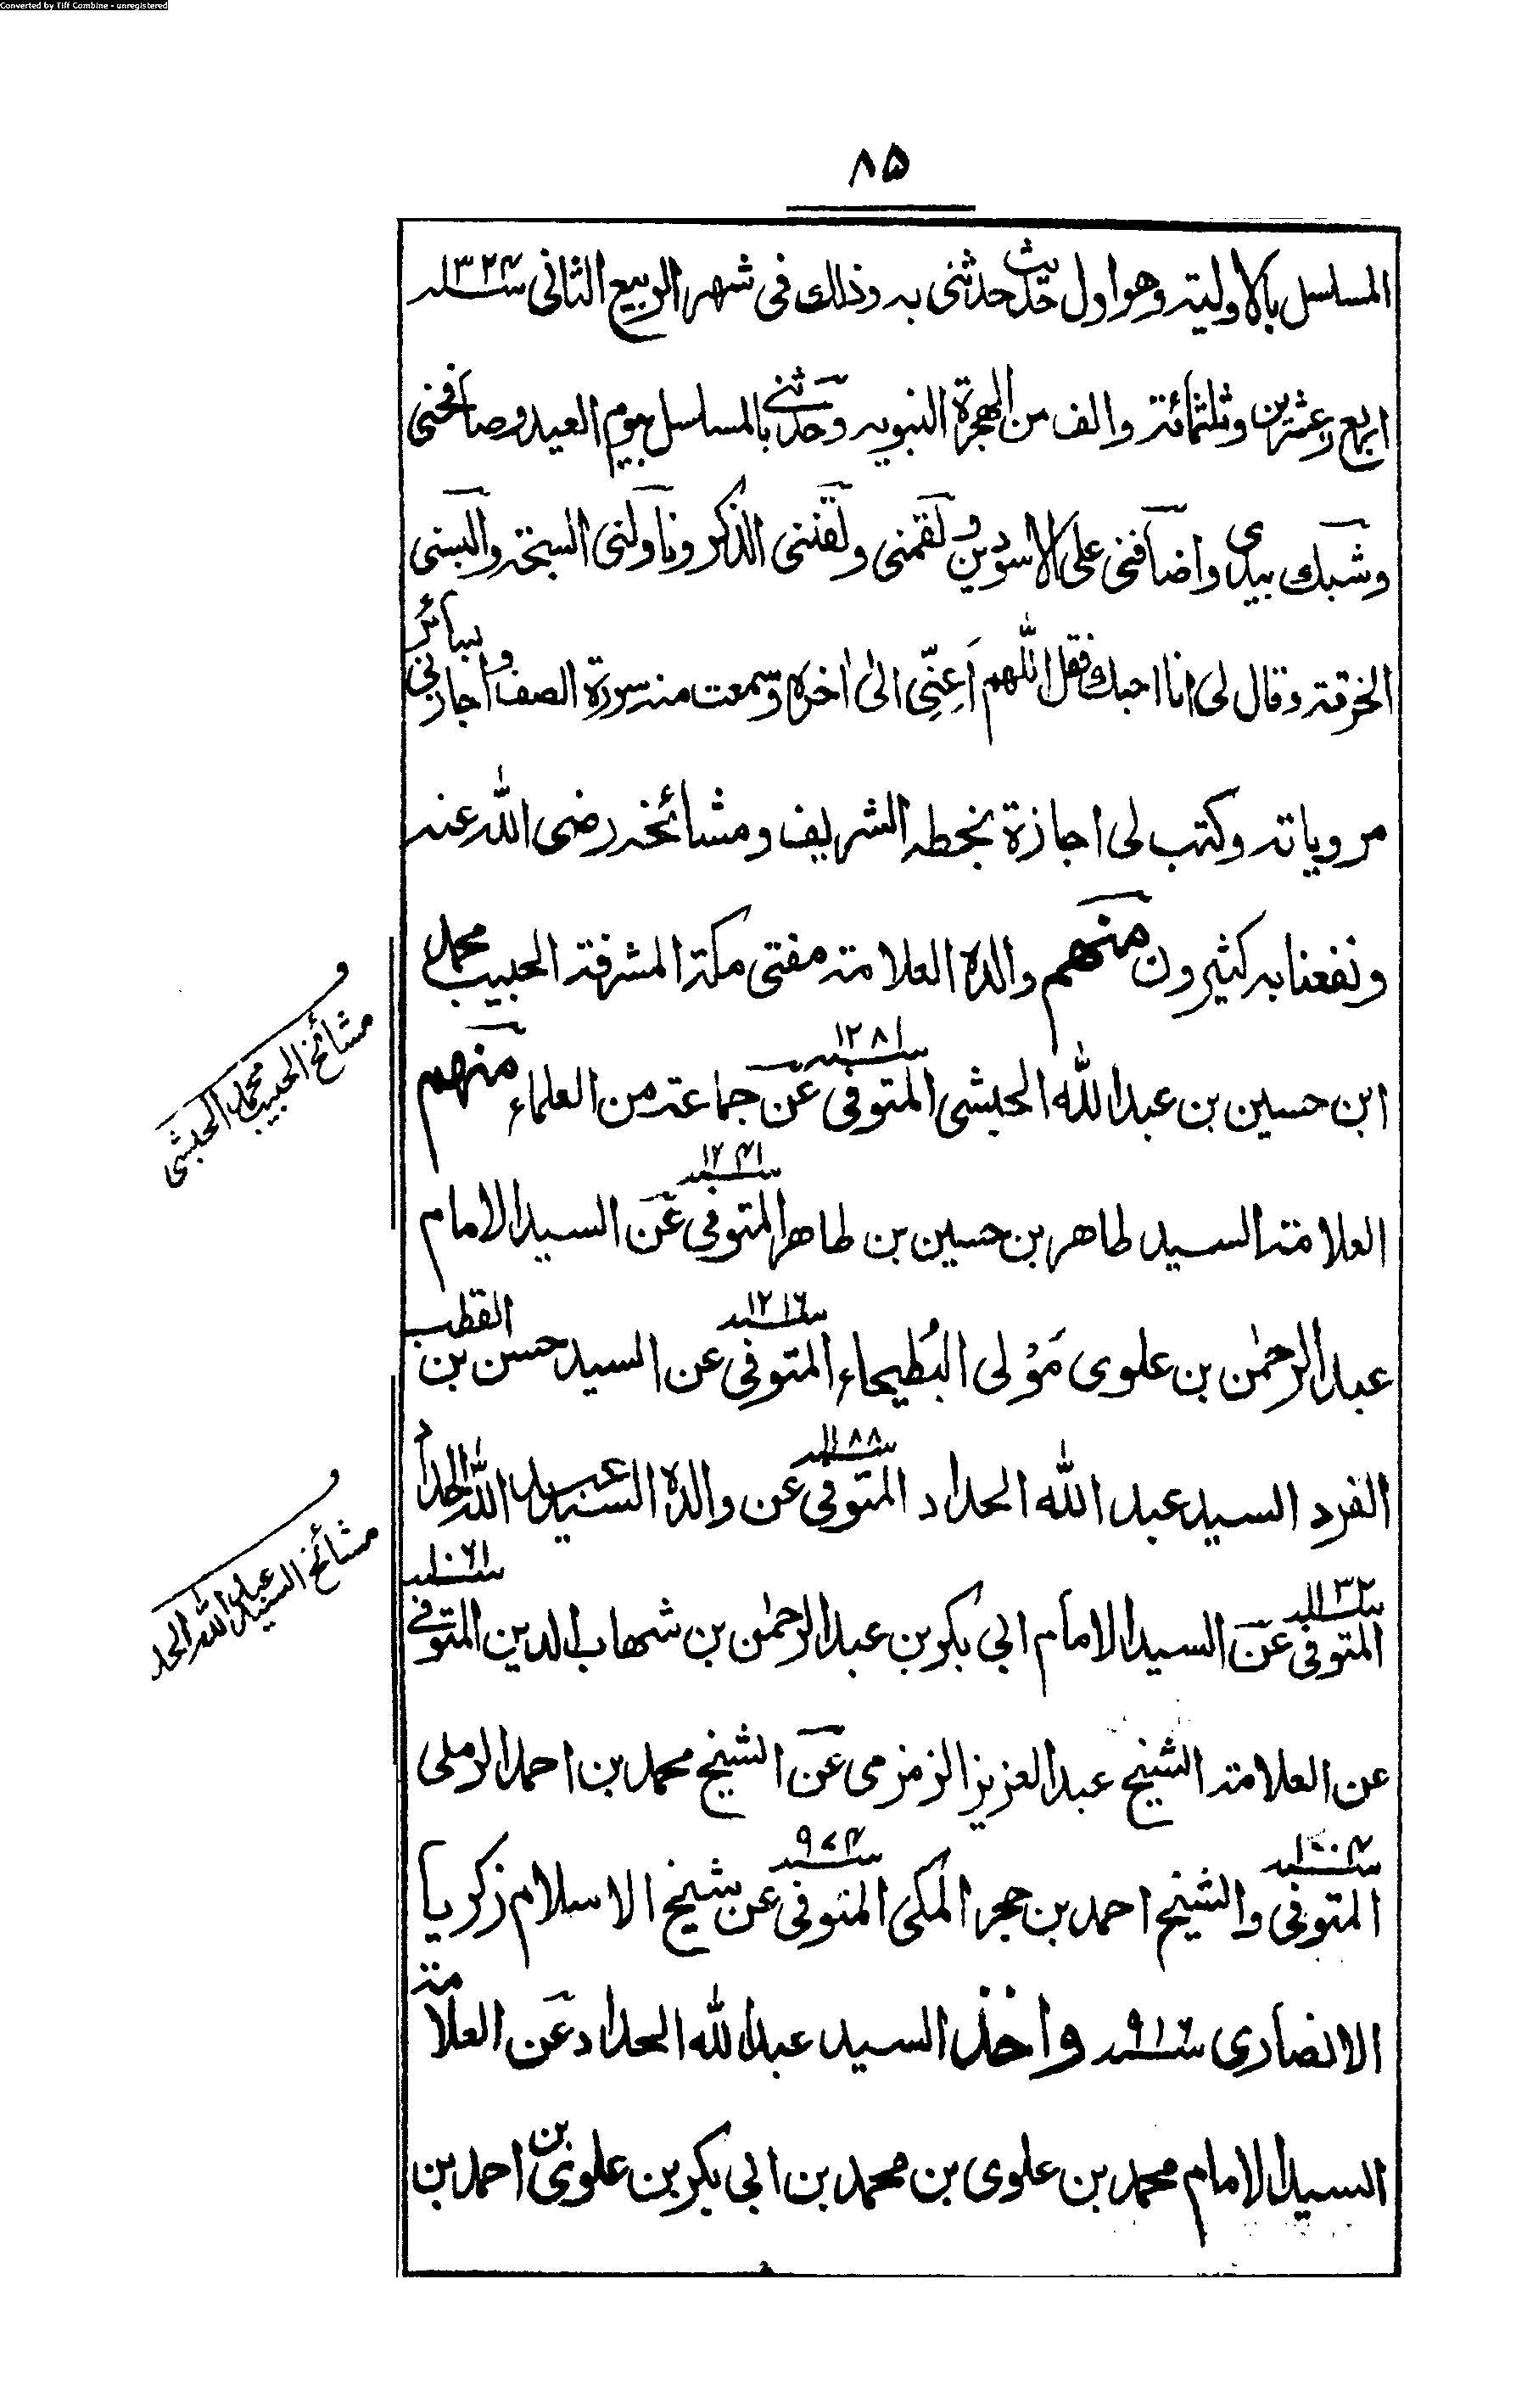 Converted by Tiff Combine - unregistered
٨۵
المسلسل بالاولية وهو اول حديث حدثنى به وذلك فى شهر الربيع الثانى سنة ١٣٢٤
اربع وعشرين وثلثمائة والف من الهجرة النبويه وحدثنى بالمسلسل بيوم العيد وصافحنى
وشبك بيدى واضافنى على الاسودين ولقمنى ولقننى الذكر وناولنى السبحة والبسنى
الخرقة وقال لى انا احبك فقل اللهم اَعِنِّى الىٰ اٰخره وسمعت منه سورة الصف واجازنى بسائر
مروياته وكتب لى اجازة بخطه الشريف ومشائخه رضى الله عنه
ونفعنا به كثيرون منهم والده العلامة مفتى مكة المشرفة الحبيب محمد
ابن حسين بن عبد الله الحبشى المتوفى سنة ١٢٨١ عن جماعة من العلماء منهم
العلامة السيد طاهر بن حسين بن طاهر المتوفى سنة ١٢٤١ عن السيد الامام
عبد الرحمٰن بن علوى مَوْلى البُطيحاء المتوفى سنة ١٢١٦ عن السيد حسن بن القطب
الفرد السيد عبد الله الحداد المتوفى سنة ١١٨٨ عن والده السيد عبد الله الحداد
المتوفى سنة ١١٣٢ عن السيد الامام ابى بكر بن عبد الرحمٰن بن شهاب الدين المتوفى سنة ١٠٦١
عن العلامة الشيخ عبد العزيز الزمزمى عن الشيخ محمد بن احمد الرملى
المتوفى سنة ١٠٠٤ والشيخ احمد بن حجر المكى المتوفى سنة ٩٧٤ عن شيخ الاسلام زكريا
الانصارى سنة ٩١٦ واخذ السيد عبد الله الحداد عن العلامة
السيد الامام محمد بن علوى بن محمد بن ابى بكر بن علوى بن احمد بن
و
مشائخ الحبيب محمد الحبشى
و
مشائخ السيد عبد الله الحد